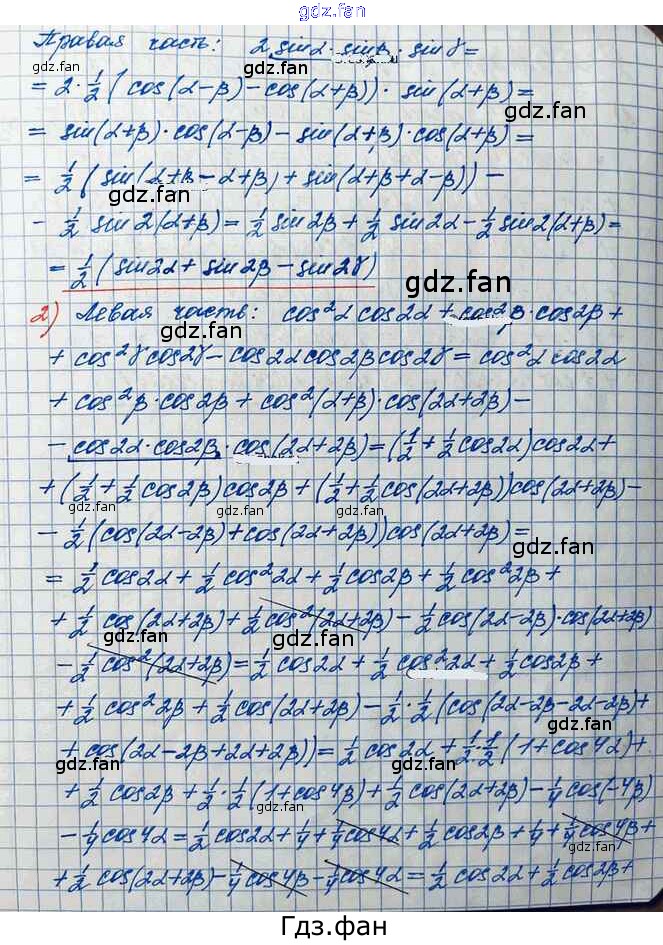 gdz.fan
gdz.fan
Правая часть: 2 sinα · sinβ · sinγ =
gdz.fan
= 2 · 1/2 (cos(α-β) - cos(α+β)) · sin(α+β) =
gdz.fan
= sin(α+β) · cos(α-β) - sin(α+β) · cos(α+β) =
= 1/2 (sin(α+β-α+β) + sin(α+β+α-β)) -
gdz.fan
- 1/2 sin2(α+β) = 1/2 sin2β + 1/2 sin2α - 1/2 sin2(α+β) =
= 1/2 (sin2α + sin2β - sin2γ)
gdz.fan
2) Левая часть: cos²α cos2α + cos²β · cos2β +
gdz.fan
+ cos²γ cos2γ - cos2α cos2β cos2γ = cos²α cos2α
+ cos²β · cos2β + cos²(α+β) · cos(2α+2β) -
gdz.fan
- cos2α · cos2β · cos(2α+2β) = (1/2 + 1/2 cos2α) cos2α +
+ (1/2 + 1/2 cos2β) cos2β + (1/2 + 1/2 cos(2α+2β)) cos(2α+2β) -
- 1/2 (cos(2α-2β) + cos(2α+2β)) cos(2α+2β) =
gdz.fan
= 1/2 cos2α + 1/2 cos²2α + 1/2 cos2β + 1/2 cos²2β +
+ 1/2 cos(2α+2β) + 1/2 cos²(2α+2β) - 1/2 cos(2α-2β) · cos(2α+2β)
gdz.fan
gdz.fan
- 1/2 cos²(2α+2β) = 1/2 cos2α + 1/2 cos²2α + 1/2 cos2β +
+ 1/2 cos²2β + 1/2 cos(2α+2β) - 1/2 · 1/2 (cos(2α-2β-2α-2β) +
gdz.fan
+ cos(2α-2β+2α+2β)) = 1/2 cos2α + 1/2 · 1/2 (1 + cos4α) +
gdz.fan
gdz.fan
+ 1/2 cos2β + 1/2 · 1/2 (1 + cos4β) + 1/2 cos(2α+2β) - 1/4 cos(-4β)
gdz.fan
- 1/4 cos4α = 1/2 cos2α + 1/4 + 1/4 cos4α + 1/2 cos2β + 1/4 + 1/4 cos4β +
gdz.fan
+ 1/2 cos(2α+2β) - 1/4 cos4β - 1/4 cos4α = 1/2 cos2α + 1/2 cos2β +
gdz.fan
Гдз.фан